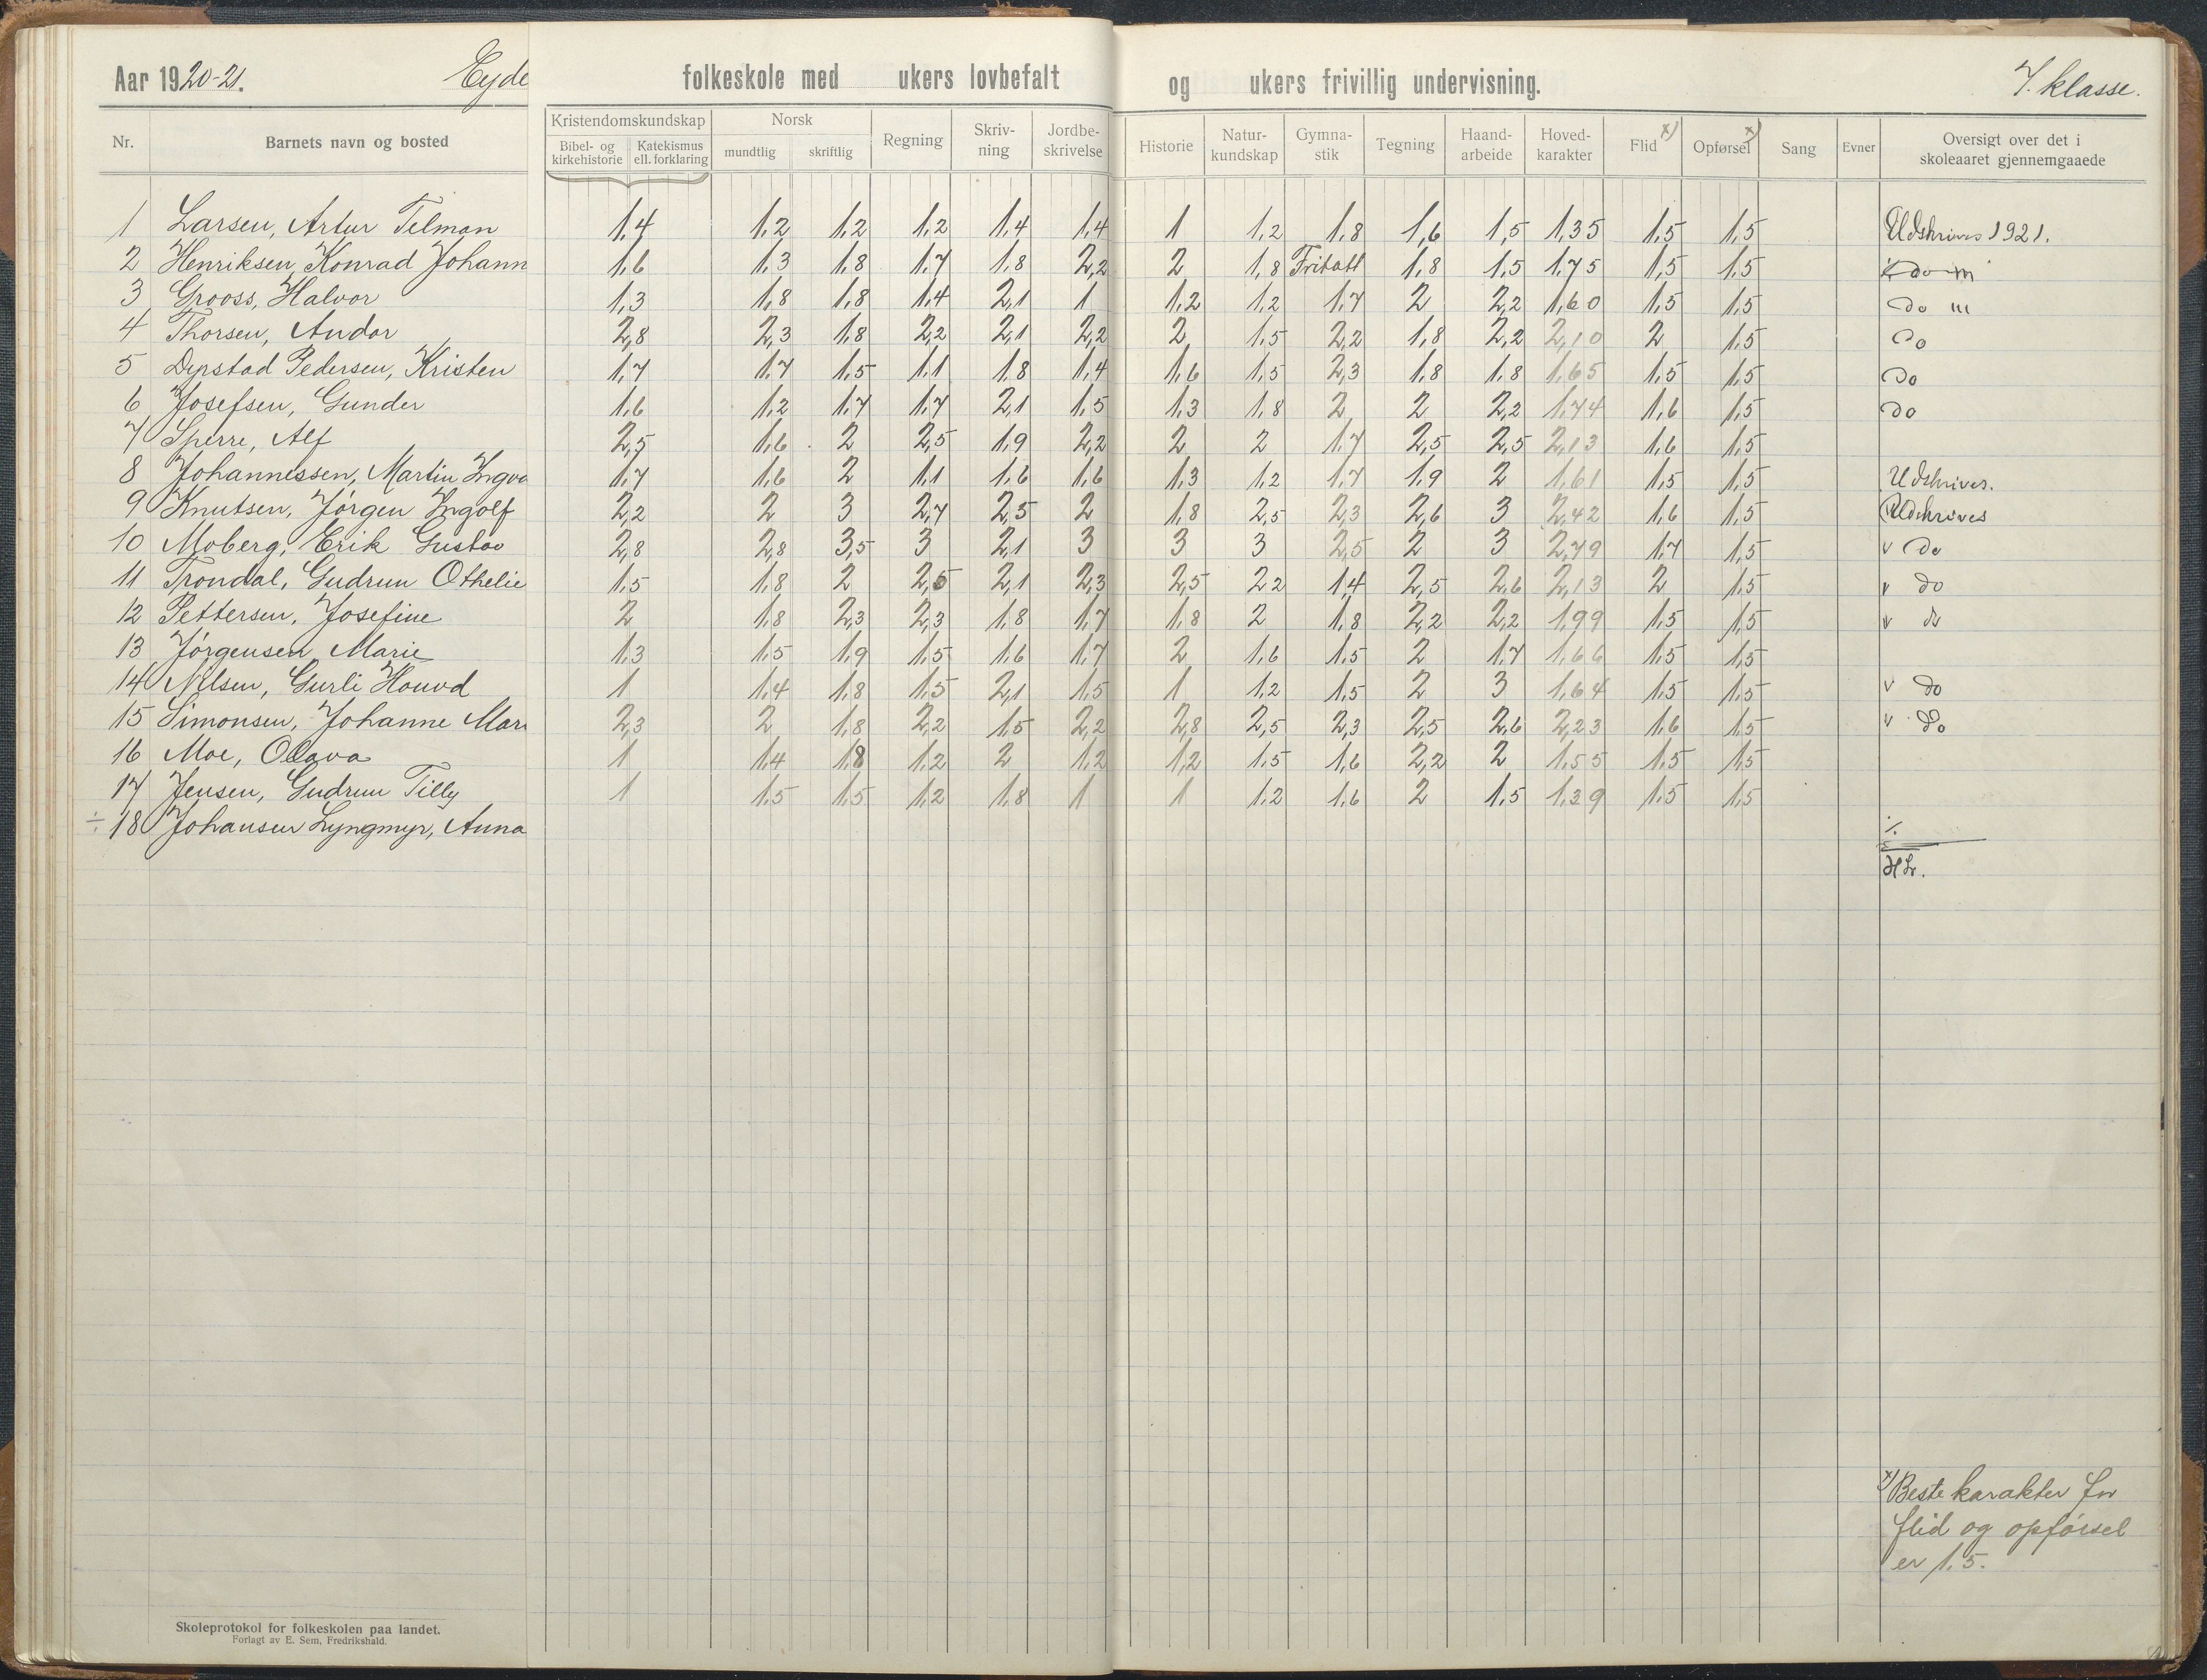 Aar 1920-21. Eyde folkeskole med ukers lovbefalt og ukers frivillig undervisning. 7. klasse.
Nr. Barnets navn og bosted Kristendomskundskap Bibel- og kirkehistorie Katekismus ell. forklaring Norsk mundtlig skriftlig Regning Skriv-ning Jordbe-skrivelse Historie Natur-kundskap Gymna-stik Tegning Haand-arbeide Hoved-karakter Flid x) Opførsel x) Sang Evner Oversigt over det i skoleaaret gjennemgaaede
1 Larsen, Artur Tilman 1,4 1,2 1,2 1,2 1,4 1,4 1 1,2 1,8 1,6 1,5 1,35 1,5 1,5 Udskrives 1921.
2 Henriksen, Konrad Johann 1,6 1,3 1,8 1,7 1,8 2,2 2 1,8 Fritatt 1,8 1,5 1,75 1,5 1,5 do
3 Grooss, Halvor 1,3 1,8 1,8 1,4 2,1 1 1,2 1,2 1,7 2 2,2 1,60 1,5 1,5 do
4 Thorsen, Andor 2,8 2,3 1,8 2,2 2,1 2,2 2 1,5 2,2 1,8 2,2 2,10 2 1,5 do
5 Dypstad Pedersen, Kristen 1,7 1,7 1,5 1,1 1,8 1,4 1,6 1,5 2,3 1,8 1,8 1,65 1,5 1,5 do
6 Josefsen, Gunder 1,6 1,2 1,7 1,7 2,1 1,5 1,3 1,8 2 2 2,2 1,74 1,6 1,5 do
7 Sperre, Alf 2,5 1,6 2 2,5 1,9 2,2 2 2 1,7 2,5 2,5 2,13 1,6 1,5
8 Johannessen, Martin Ingva 1,7 1,6 2 1,1 1,6 1,6 1,3 1,2 1,7 1,9 2 1,61 1,5 1,5 Udskrives.
9 Knutsen, Jörgen Ingolf 2,2 2 3 2,7 2,5 2 1,8 2,5 2,3 2,6 3 2,42 1,6 1,5 Udskrives
10 Moberg, Erik Gustav 2,8 2,8 3,5 3 2,1 3 3 3 2,5 2 3 2,79 1,7 1,5 v do
11 Trondal, Gudrun Othelie 1,5 1,8 2 2,5 2,1 2,3 2,5 2 2 1,4 2,5 2,6 2,13 2 1,5 v do
12 Pettersen, Josefine 2 1,8 2,3 2,3 1,8 1,7 1,8 2 1,8 2,2 2,2 1,99 1,5 1,5 v do
13 Jörgensen Marie 1,3 1,5 1,9 1,5 1,6 1,7 2 1,6 1,5 2 1,7 1,66 1,5 1,5
14 Nilsen, Gurli Houvd 1 1,4 1,8 1,5 2,1 1,5 1 1,2 1,5 2 3 1,64 1,5 1,5 v do
15 Simonsen, Johanne Mari 2,3 2 1,8 2,2 1,5 2,2 2,8 2,5 2,3 2,5 2,6 2,23 1,6 1,5 v do
16 Moe, Olava 1 1,4 1,8 1,2 2 1,2 1,2 1,5 1,6 2,2 2 1,55 1,5 1,5
17 Jensen, Gudrun Tilly 1 1,5 1,5 1,2 1,8 1 1 1,2 1,6 2 1,5 1,39 1,5 1,5
÷ 18 Johansen Lyngmyr, Anna ./.
HL.
x) Beste karakter for
flid og opförsel
er 1,5.
Skoleprotokol for folkeskolen paa landet.
Forlagt av E. Sem, Fredrikshald.